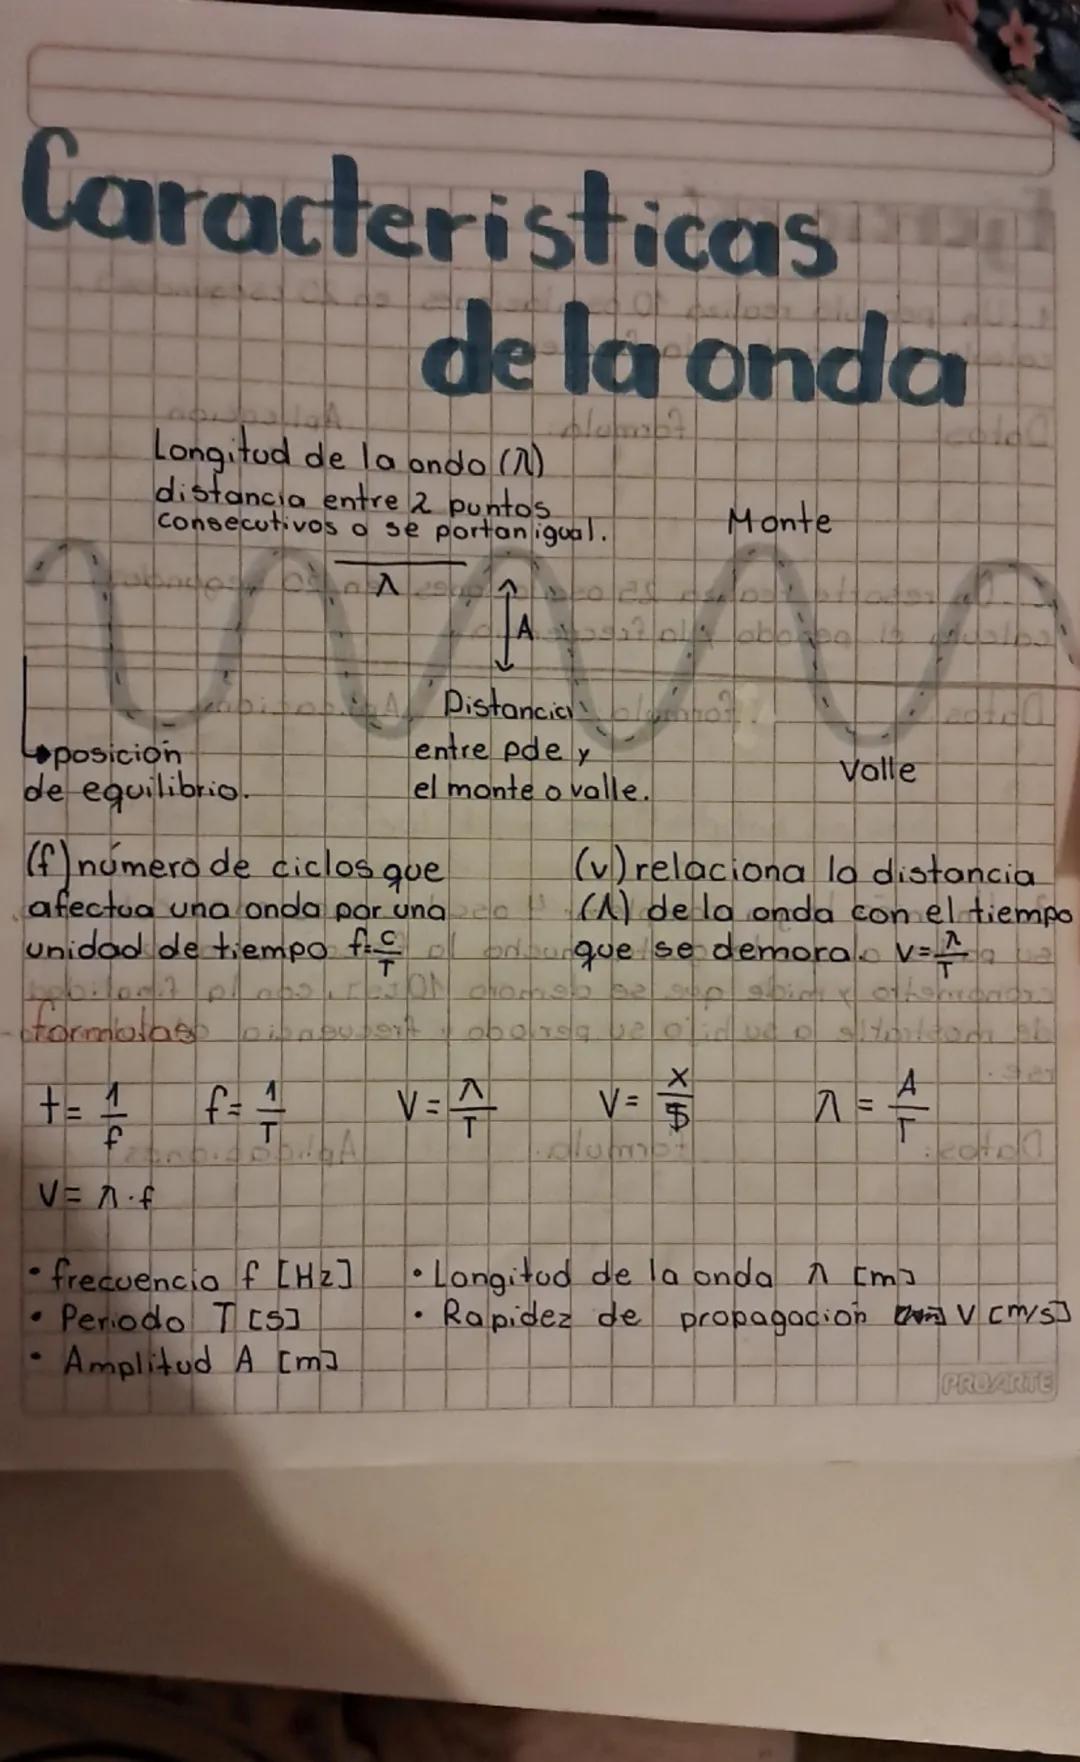 Caracteristicas
de la onda
Longitud de la onda (λ)
distancia entre 2 puntos
consecutivos o se portan igual.
Monte
λ
A
Distancia
entre pde y
el monte o valle.
posición
de equilibrio.
Valle
(f) número de ciclos que
afectua una onda por una
unidad de tiempo f=c/T
(v) relaciona la distancia
(λ) de la onda con el tiempo
que se demora. v=λ/T
formulas
t=1/f f=1/T V=λ/T V=x/$ λ=A/T
V=λ·f
• frecuencia f [Hz]
• Periodo T [s]
• Amplitud A [m]
• Longitud de la onda λ [m]
• Rapidez de propagación V [m/s]
PROARTE